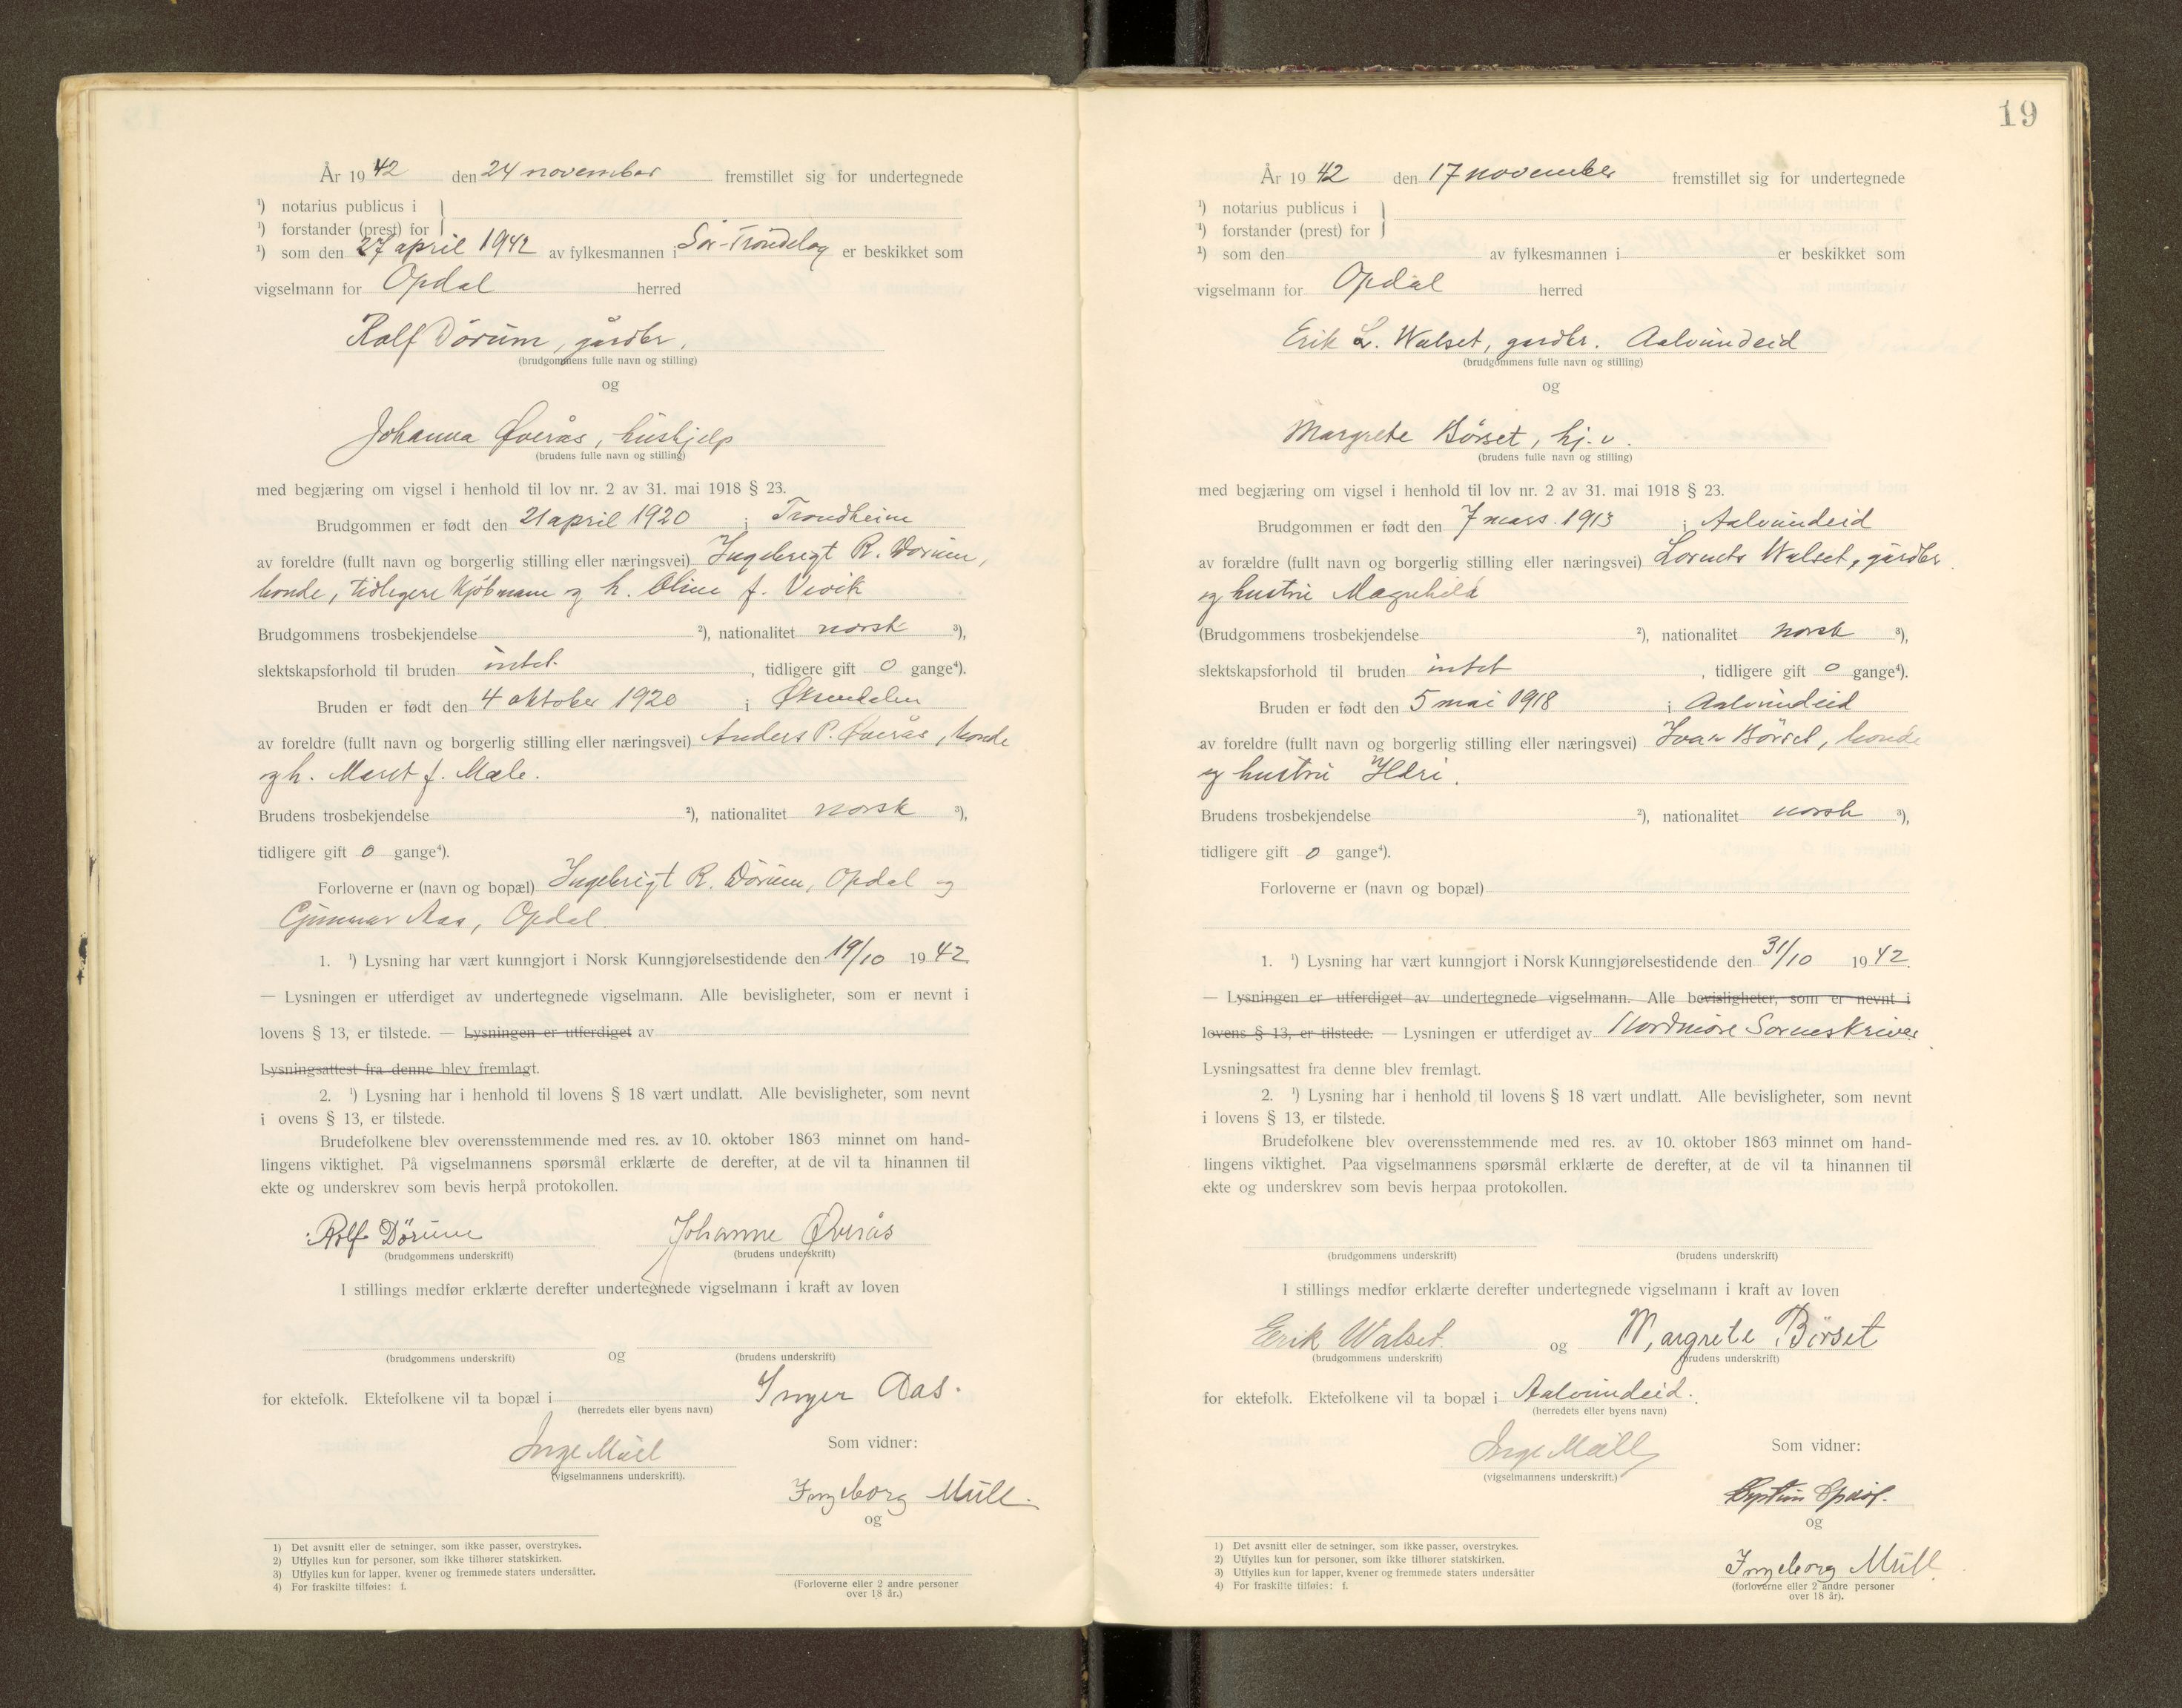 År 1942 den 24 november fremstillet sig for undertegnede
¹) notarius publicus i
¹) forstander (prest) for
¹) som den 27 april 1942 av fylkesmannen i Sør-Trøndelag er beskikket som
vigselmann for Opdal herred
Rolf Dørum, gårdbr.
(brudgommens fulle navn og stilling)
og
Johanna Øverås, hushjelp
(brudens fulle navn og stilling)
med begjæring om vigsel i henhold til lov nr. 2 av 31. mai 1918 § 23.
Brudgommen er født den 21 april 1920 i Trondheim
av foreldre (fullt navn og borgerlig stilling eller næringsvei) Ingebrigt R. Dørum,
bonde, tidligere kjøbmann og h. Oline f. Vevik
Brudgommens trosbekjendelse ²), nationalitet norsk ³),
slektskapsforhold til bruden intet, tidligere gift 0 gange⁴).
Bruden er født den 4 oktober 1920 i Øksendalen
av foreldre (fullt navn og borgerlig stilling eller næringsvei) Anders P. Øverås, bonde
og h. Maret f. Mæle.
Brudens trosbekjendelse ²), nationalitet norsk ³),
tidligere gift 0 gange⁴).
Forloverne er (navn og bopæl) Ingebrigt R. Dørum, Opdal og
Gunnar Aas, Opdal.
1. ¹) Lysning har vært kunngjort i Norsk Kunngjørelsestidende den 19/10 1942
— Lysningen er utferdiget av undertegnede vigselmann. Alle bevisligheter, som er nevnt i
lovens § 13, er tilstede. — Lysningen er utferdiget av
Lysningsattest fra denne blev fremlagt.
2. ¹) Lysning har i henhold til lovens § 18 vært undlatt. Alle bevisligheter, som nevnt
i ovens § 13, er tilstede.
Brudefolkene blev overensstemmende med res. av 10. oktober 1863 minnet om hand-
lingens viktighet. På vigselmannens spørsmål erklærte de derefter, at de vil ta hinannen til
ekte og underskrev som bevis herpå protokollen.
Rolf Dørum Johanne Øverås
(brudgommens underskrift) (brudens underskrift)
I stillings medfør erklærte derefter undertegnede vigselmann i kraft av loven
og
(brudgommens underskrift) (brudens underskrift)
for ektefolk. Ektefolkene vil ta bopæl i Inger Aas.
(herredets eller byens navn)
Inge Mull Som vidner:
(vigselmannens underskrift).
Ingeborg Mull.
og
1) Det avsnitt eller de setninger, som ikke passer, overstrykes.
2) Utfylles kun for personer, som ikke tilhører statskirken.
3) Utfylles kun for lapper, kvener og fremmede staters undersåtter.
4) For fraskilte tilføies: f.
(Forloverne eller 2 andre personer
over 18 år.)
19
År 1942 den 17 november fremstillet sig for undertegnede
¹) notarius publicus i
¹) forstander (prest) for
¹) som den av fylkesmannen i er beskikket som
vigselmann for Opdal herred
Erik L. Walset, gardbr. Aalvundeid
(brudgommens fulle navn og stilling)
og
Margrete Børset, hj. v.
(brudens fulle navn og stilling)
med begjæring om vigsel i henhold til lov nr. 2 av 31. mai 1918 § 23.
Brudgommen er født den 7 mars 1913 i Aalvundeid
av forældre (fullt navn og borgerlig stilling eller næringsvei) Walset, gårdbr.
og hustru Magnhild
(Brudgommens trosbekjendelse ²), nationalitet norsk ³),
slektskapsforhold til bruden intet, tidligere gift 0 gange⁴).
Bruden er født den 5 mai 1918 i Aalvundeid
av foreldre (fullt navn og borgerlig stilling eller næringsvei) Ivar Børset, bonde
og hustru Ildri.
Brudens trosbekjendelse ²), nationalitet norsk ³),
tidligere gift 0 gange⁴).
Forloverne er (navn og bopæl)
1. ¹) Lysning har vært kunngjort i Norsk Kunngjørelsestidende den 31/10 1942.
— Lysningen er utferdiget av undertegnede vigselmann. Alle bevisligheter, som er nevnt i
lovens § 13, er tilstede. — Lysningen er utferdiget av Nordmøre Sorenskriver
Lysningsattest fra denne blev fremlagt.
2. ¹) Lysning har i henhold til lovens § 18 vært undlatt. Alle bevisligheter, som nevnt
i lovens § 13, er tilstede.
Brudefolkene blev overensstemmende med res. av 10. oktober 1863 minnet om hand-
lingens viktighet. Paa vigselmannens spørsmål erklærte de derefter, at de vil ta hinannen til
ekte og underskrev som bevis herpaa protokollen.
(brudgommens underskrift) (brudens underskrift)
I stillings medfør erklærte derefter undertegnede vigselmann i kraft av loven
Erik Walset og Margrete Børset
(brudgommens underskrift) (brudens underskrift)
for ektefolk. Ektefolkene vil ta bopæl i Aalvundeid.
(herredets eller byens navn)
Inge Mull Som vidner:
(vigselmannens underskrift.)
og
Ingeborg Mull
1) Det avsnitt eller de setninger, som ikke passer, overstrykes.
2) Utfylles kun for personer, som ikke tilhører statskirken.
3) Utfylles kun for lapper, kvener og fremmede staters undersåtter
4) For fraskilte tilføies: f.
(forloverne eller 2 andre personer
over 18 år).